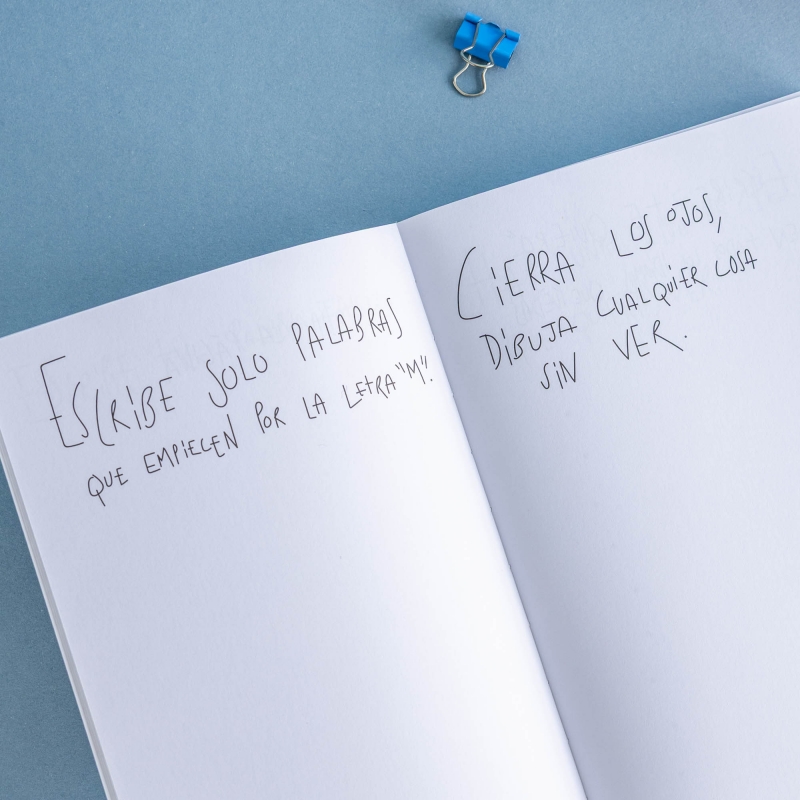 ESCRIBE SOLO PALABRAS
QUE EMPIECEN POR LA LETRA "M".
CIERRA LOS OJOS,
DIBUJA CUALQUIER COSA
SIN VER.